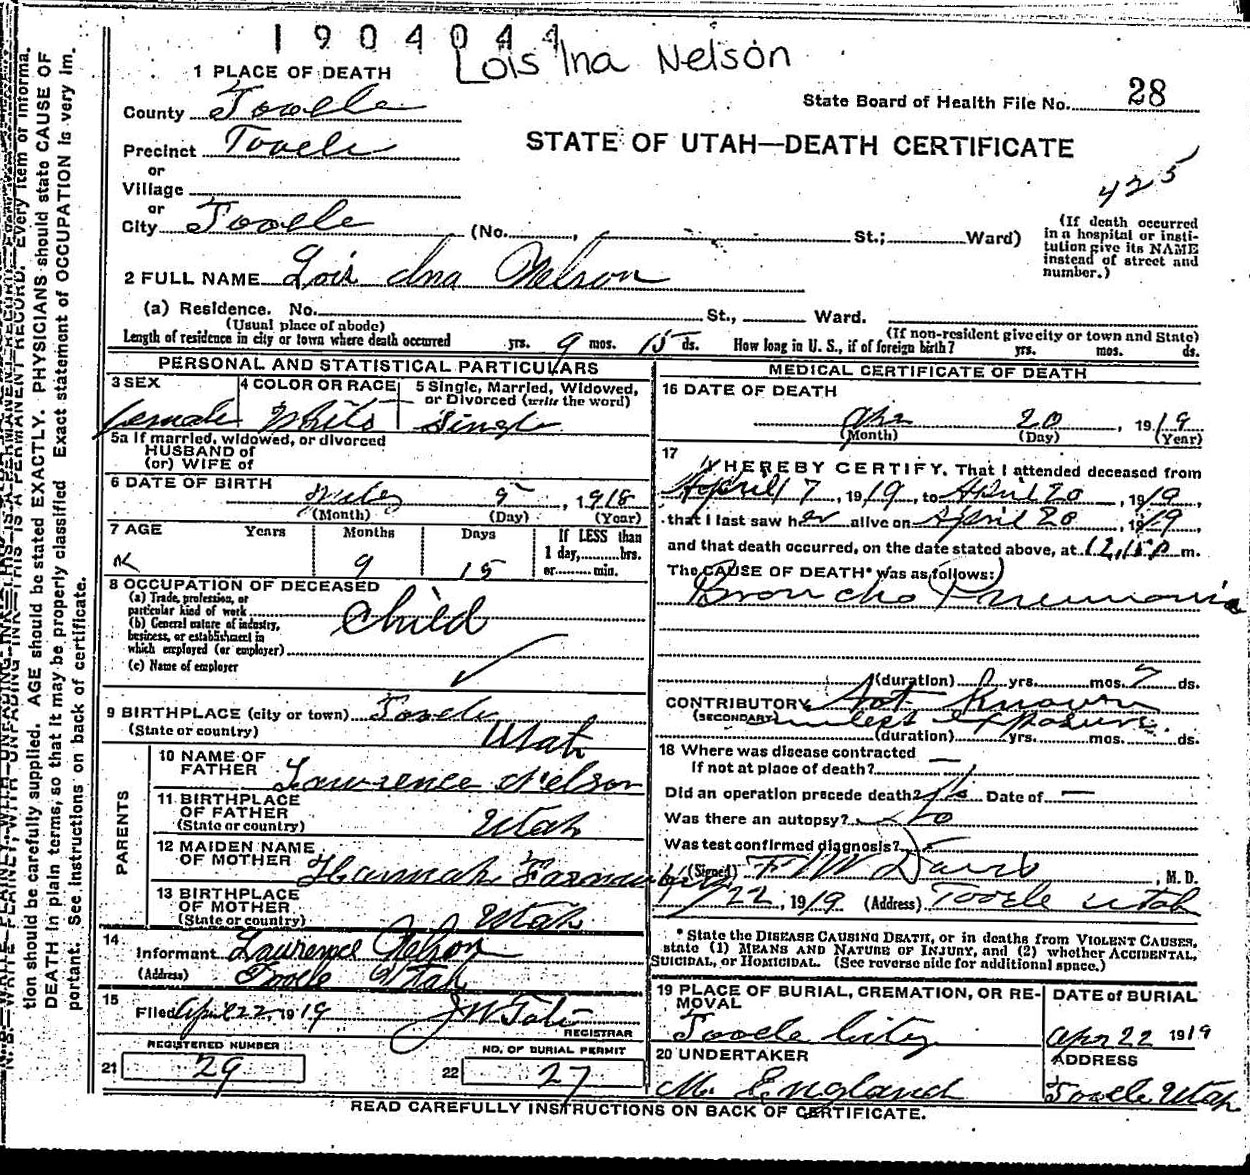 1904044
Lois Ina Nelson
1 PLACE OF DEATH
County Tooele
State Board of Health File No. 28
Precinct Tooele
STATE OF UTAH—DEATH CERTIFICATE
or
Village
425
or
City Tooele (No. , St.; Ward)
(If death occurred in a hospital or insti-
tution give its NAME
instead of street and
number.)
2 FULL NAME Lois Ina Nelson
(a) Residence. No. St., Ward.
(Usual place of abode) (If non-resident give city or town and State)
Length of residence in city or town where death occurred yrs. 9 mos. 15 ds. How long in U. S., if of foreign birth? yrs. mos. ds.
PERSONAL AND STATISTICAL PARTICULARS
3 SEX
female
4 COLOR OR RACE
White
5 Single, Married, Widowed,
or Divorced (write the word)
Single
5a If married, widowed, or divorced
HUSBAND of
(or) WIFE of
6 DATE OF BIRTH
, 1918
(Month) (Day) (Year)
7 AGE Years Months Days If LESS than
1 day, hrs.
9 15 or min.
8 OCCUPATION OF DECEASED
(a) Trade, profession, or
particular kind of work
Child
(b) General nature of industry,
business, or establishment in
which employed (or employer)
(c) Name of employer
9 BIRTHPLACE (city or town) Tooele
(State or country) Utah
PARENTS
10 NAME OF
FATHER Lawrence Nelson
11 BIRTHPLACE
OF FATHER
(State or country) Utah
12 MAIDEN NAME
OF MOTHER Hannah
13 BIRTHPLACE
OF MOTHER
(State or country) Utah
14
Informant Lawrence Nelson
(Address) Tooele Utah
15
Filed Apr 22, 1919
REGISTRAR
REGISTERED NUMBER
21 29
NO. OF BURIAL PERMIT
22 27
MEDICAL CERTIFICATE OF DEATH
16 DATE OF DEATH
Apr 20, 1919
(Month) (Day) (Year)
17
I HEREBY CERTIFY, That I attended deceased from
April 17, 1919, to April 20, 1919
that I last saw her alive on April 20, 1919,
and that death occurred, on the date stated above, at 12,15 P m.
The CAUSE OF DEATH* was as follows:
Broncho Pneumonia
(duration) yrs. mos. 7 ds.
CONTRIBUTORY Not Known
(SECONDARY) unless exposure.
(duration) yrs. mos. ds.
18 Where was disease contracted
If not at place of death? —
Did an operation precede death? No Date of —
Was there an autopsy? No
Was test confirmed diagnosis?
(Signed) F M Davis, M. D.
4/22, 1919 (Address) Tooele Utah
* State the DISEASE CAUSING DEATH, or in deaths from VIOLENT CAUSES,
state (1) MEANS AND NATURE OF INJURY, and (2) whether ACCIDENTAL,
SUICIDAL, or HOMICIDAL. (See reverse side for additional space.)
19 PLACE OF BURIAL, CREMATION, OR RE-
MOVAL
Tooele City
DATE of BURIAL
Apr 22 1919
20 UNDERTAKER
M. England
ADDRESS
Tooele Utah
READ CAREFULLY INSTRUCTIONS ON BACK OF CERTIFICATE.
tion should be carefully supplied. AGE should be stated EXACTLY. PHYSICIANS should state CAUSE OF
DEATH in plain terms, so that it may be properly classified. Exact statement of OCCUPATION is very im-
portant. See instructions on back of certificate.